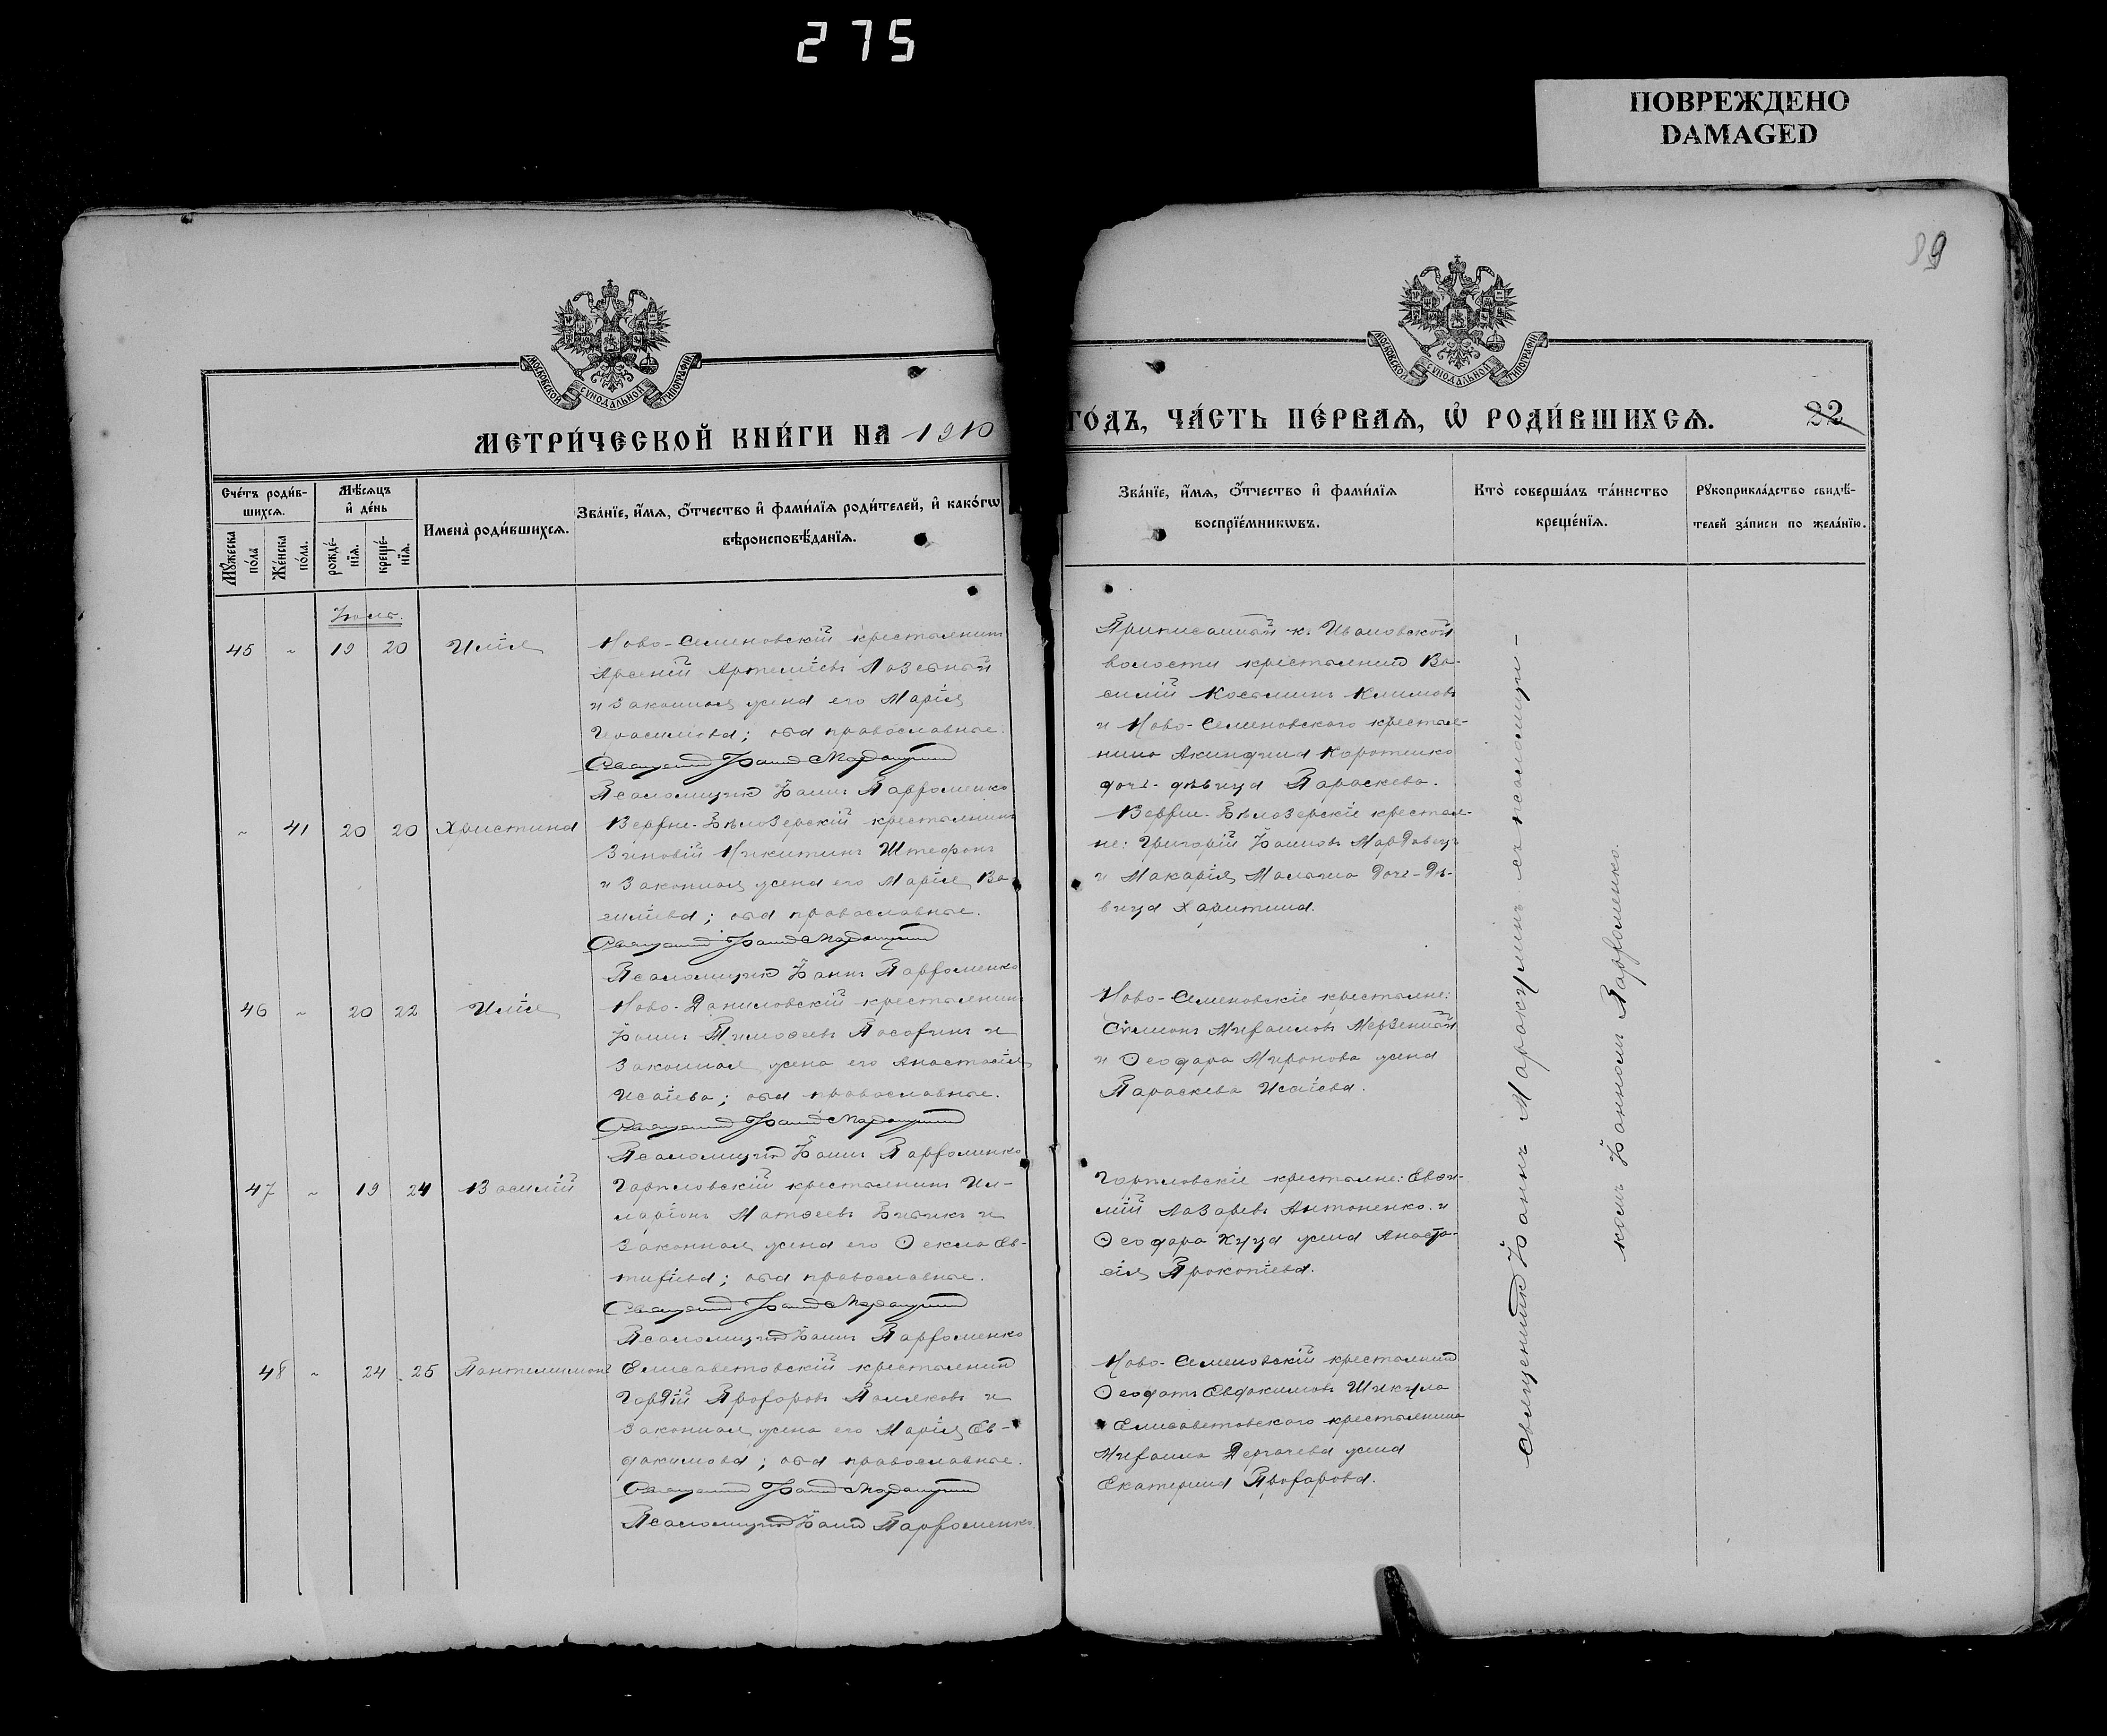 275
ПОВРЕЖДЕНО
DAMAGED
89
МОСКОВСКОЙ СѴНОДАЛЬНОЙ ТИПОГРАФІИ
МОСКОВСКОЙ СѴНОДАЛЬНОЙ ТИПОГРАФІИ
МЕТРИ́ЧЕСКОЙ КНИ́ГИ НА 1910
ГО́ДЪ, ЧА́СТЬ ПЕ́РВАѦ, Ѡ҆ РОДИ́ВШИХСѦ.
22
Сче́тъ роди́в-
шихсѧ.
Мꙋ́жеска по́ла
Же́нска по́ла.
Мѣ́сѧцъ
и҆ де́нь
рожде́-
нїѧ.
креще́-
нїѧ.
Имена̀ роди́вшихсѧ.
Зва́нїе, и҆́мѧ, ѻ҆́тчество и҆ фами́лїѧ роди́телей, и҆ како́гѡ
вѣроисповѣ́данїѧ.
Зва́нїе, и҆́мѧ, ѻ҆́тчество и҆ фами́лїѧ
воспрїе́мникѡвъ.
Кто̀ соверша́лъ та́инство
креще́нїѧ.
Рꙋкоприкла́дство свидѣ́-
телей за́писи по жела́нїю.
Іюль.
45 " 19 20 Илія
Ново-Семеновскій крестьянинъ
Арсеній Артеміевъ Лозовый
и законная жена его Марія
Герасимова; оба православные.
Священникъ Іоаннъ Маракулинъ
Псаломщикъ Іоаннъ Парфоменко
Приписанный къ Ивановской
волости крестьянинъ Ва-
силій Косьминъ Климовъ
и Ново-Семеновского крестья-
нина Акиндина Коротенко
дочь-дѣвица Параскева.
" 41 20 20 Христина
Верхне-Бѣлозерскій крестьянинъ
Зиновій Никитинъ Штефонъ
и законная жена его Марія Ва-
силіева; оба православные.
Священникъ Іоаннъ Маракулинъ
Псаломщикъ Іоаннъ Парфоменко
Верхне-Бѣлозерскіе крестья-
не: Григорій Іоанновъ Мардовецъ
и Макарія дочь-дѣ-
вица Харитина.
46 " 20 22 Илія
Ново-Даниловскій крестьянинъ
Іоаннъ Тимоѳеевъ и
законная жена его Анастасія
Исаіева; оба православные.
Священникъ Іоаннъ Маракулинъ
Псаломщикъ Іоаннъ Парфоменко
Ново-Семеновскіе крестьяне:
Сѵмеонъ Михаиловъ Мерзенный
и Ѳеодора Миронова жена
Параскева Исаіева.
47 " 19 24 Василій
Горпловскій крестьянинъ Ил-
ларіонъ Матѳеевъ Бибикъ и
законная жена его Ѳекла Ев-
тихіева; оба православные.
Священникъ Іоаннъ Маракулинъ
Псаломщикъ Іоаннъ Парфоменко
Горпловскіе крестьяне: Евѳи-
мій Лазаревъ Антоненко и
Ѳеодора Куца жена Анаста-
сія Прокопіева.
48 " 24 25 Пантелимонъ
Елисаветовскій крестьянинъ
Гордій Прохоровъ Поляковъ и
законная жена его Марія Ев-
докимова; оба православные.
Священникъ Іоаннъ Маракулинъ
Псаломщикъ Іоаннъ Парфоменко
Ново-Семеновскій крестьянинъ
Ѳеодотъ Евдокимовъ Шикула
и Елисаветовского крестьянина
Михаила Дергачева жена
Екатерина Прохорова.
Священникъ Іоаннъ Маракулинъ съ псаломщи-
комъ Іоанномъ Парфоменко.